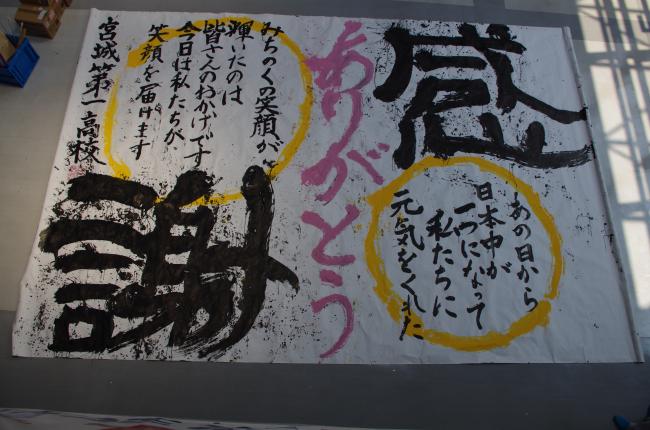 感
あの日から
日本中が
一つになって
私たちに
元気をくれた
ありがとう
みちのくの笑顔が
輝いたのは
皆さんのおかげです
今日は私たちが
笑顔を届けます
謝
宮城第一高校